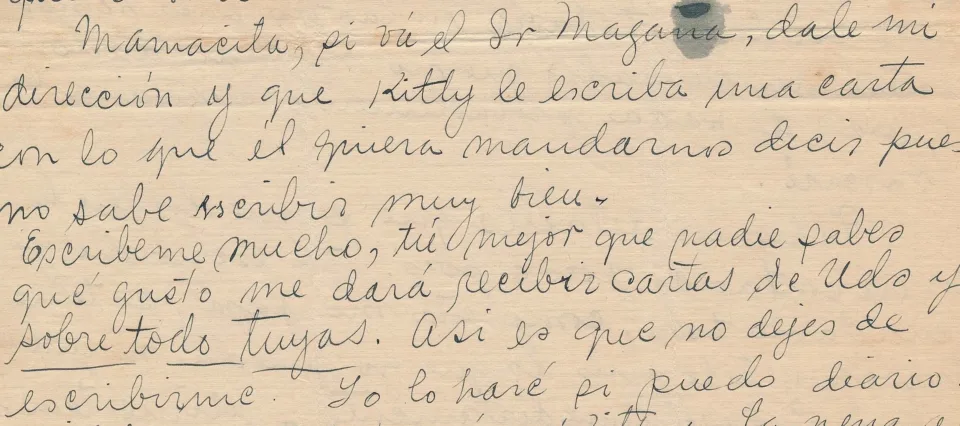 Mamacita, si vá el Sr Magaña, dale mi
dirección y que Kitty le escriba una carta
con lo que él quiera mandarnos decir pues
no sabe escribir muy bien.
Escribeme mucho, tú mejor que nadie sabes
qué gusto me dará recibir cartas de Uds y
sobre todo tuyas. Asi es que no dejes de
escribirme. Yo lo haré si puedo diario.